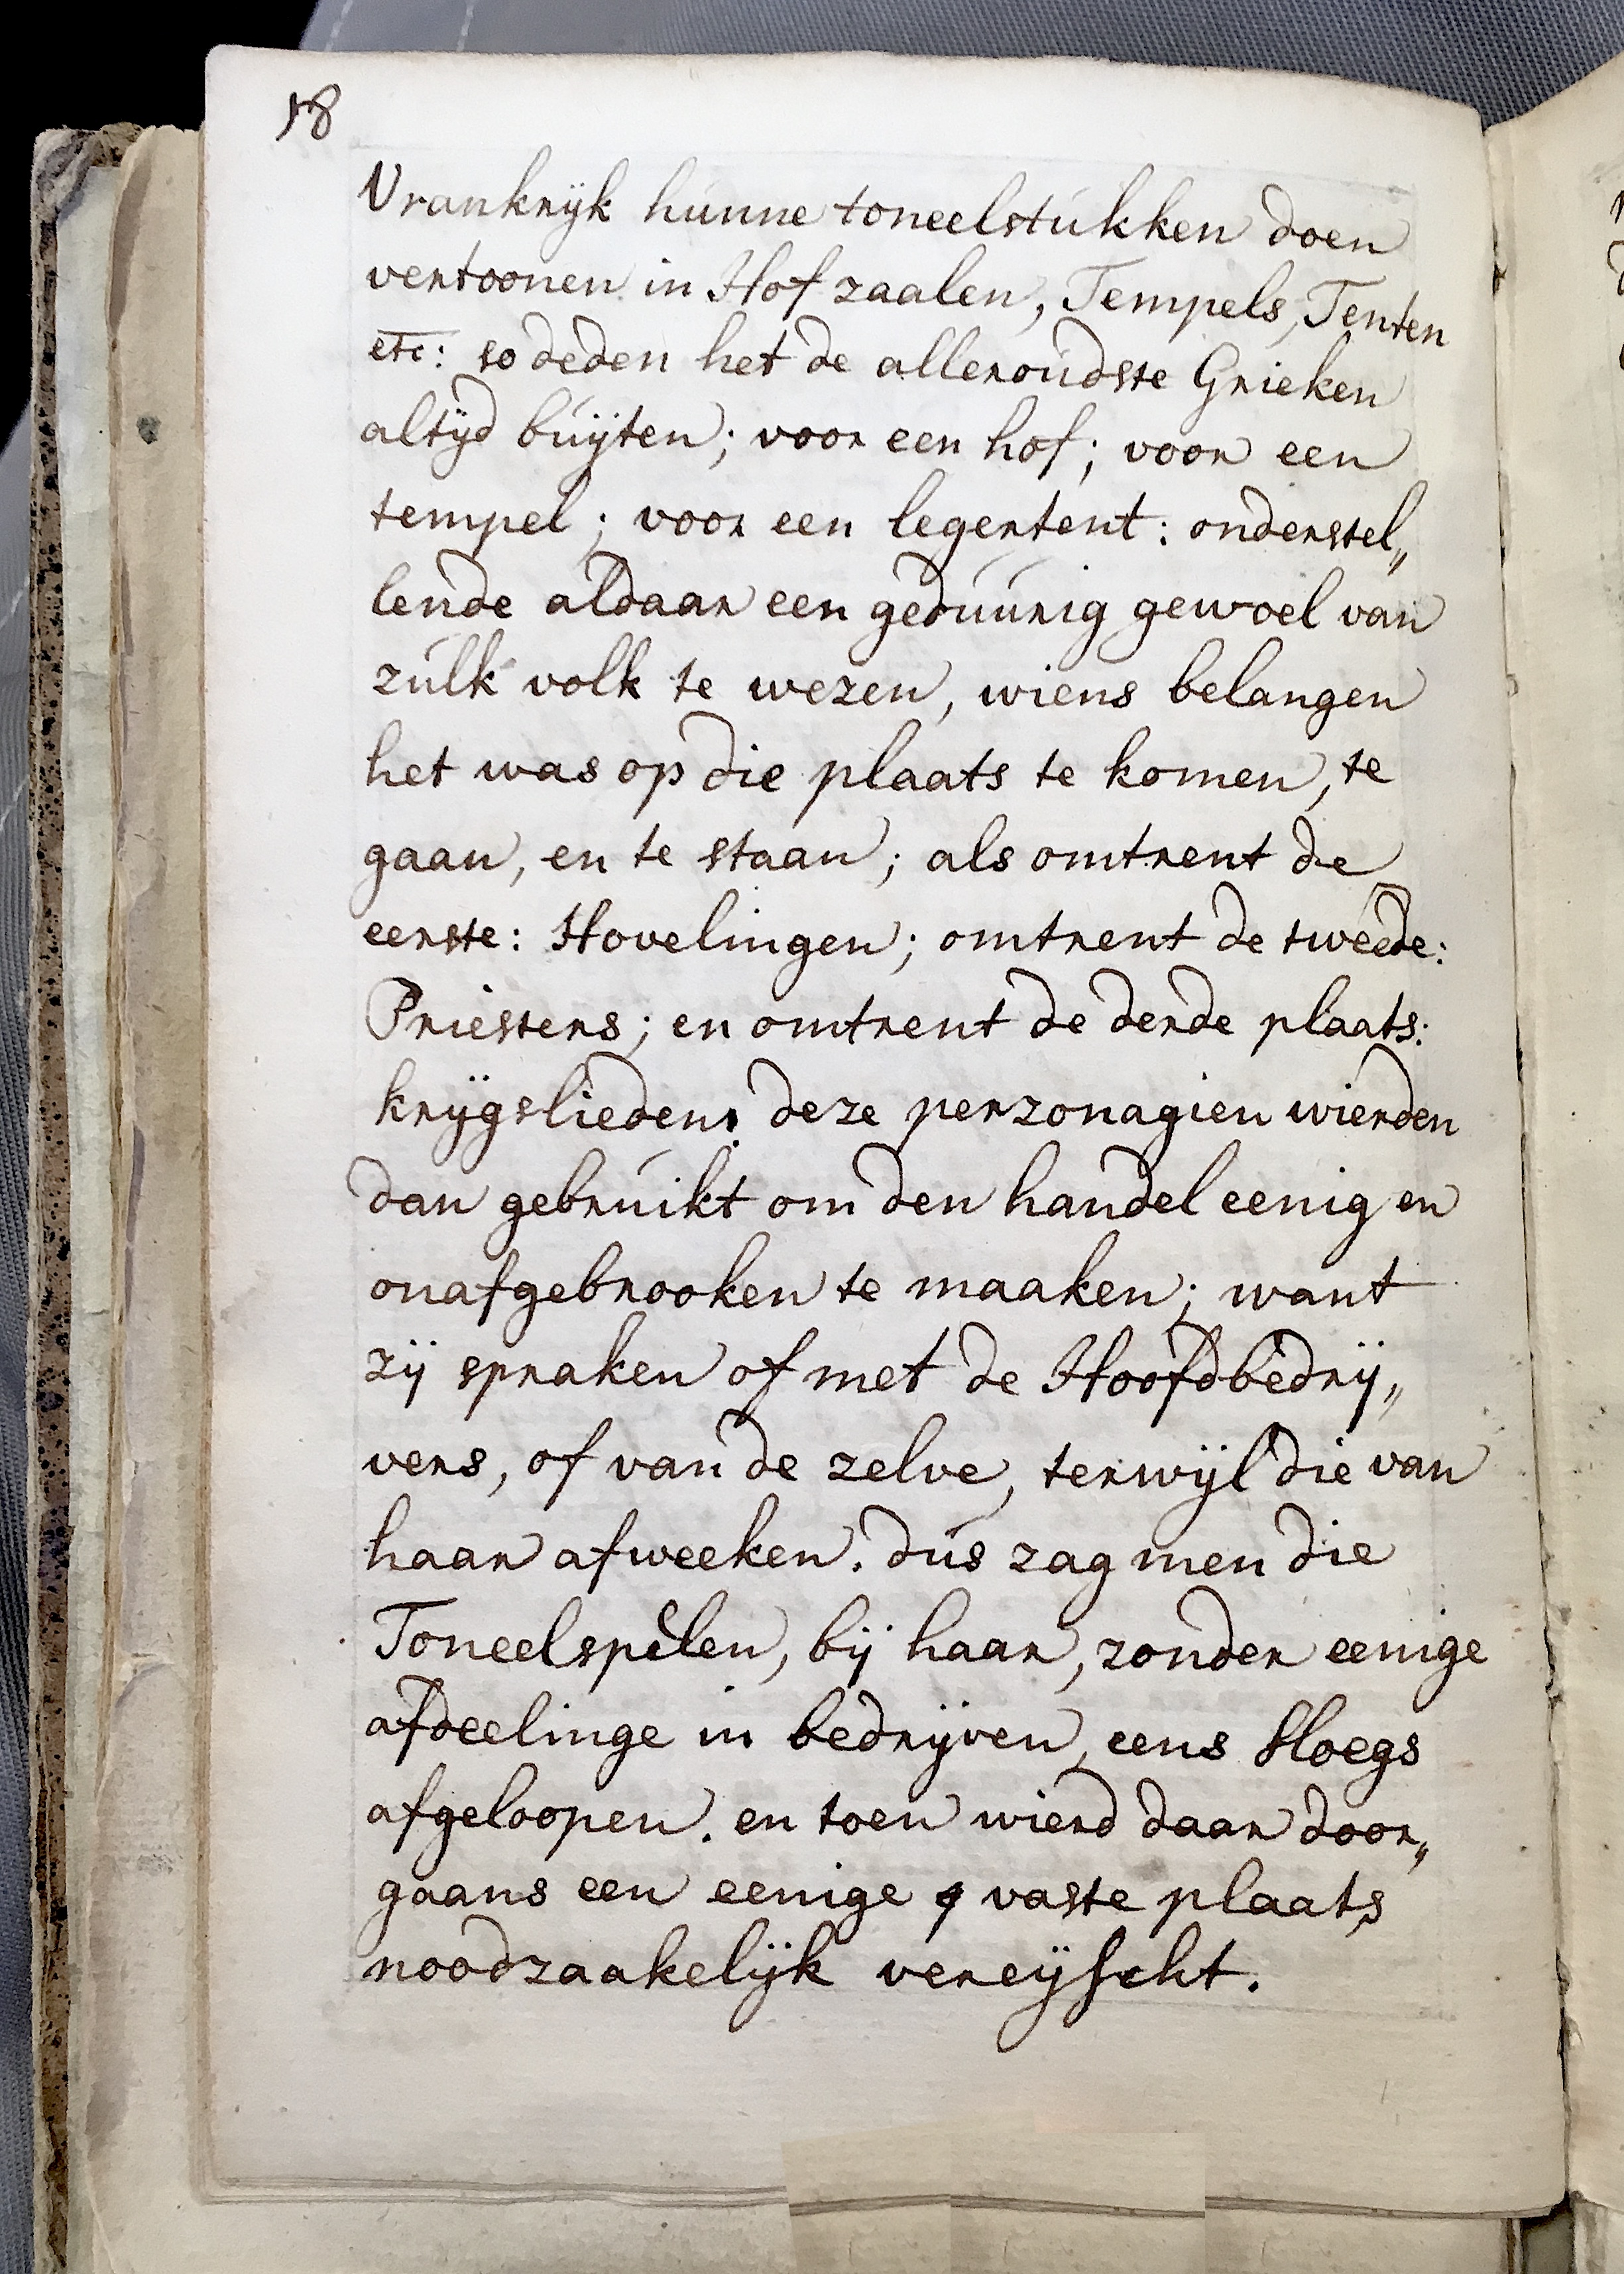 18
Vrankryk hunne toneelstukken doen
vertoonen in Hof zaalen, Tempels, Tenten
etc: so deden het de alleroudste Grieken
altyd buyten; voor een hof; voor een
tempel; voor een legertent: onderstel„
lende aldaar een geduurig gewoel van
zulk volk te wezen, wiens belangen
het was op die plaats te komen, te
gaan, en te staan; als omtrent de
eerste: Hovelingen; omtrent de tweede:
Priesters; en omtrent de derde plaats:
krÿgslieden: deze perzonagien wierden
dan gebruikt om den handel eenig en
onafgebrooken te maaken; want
zij spraken of met de Hoofdbedrij„
vers, of van de zelve, terwÿl die van
haar afweeken. dus zag men die
Toneelspelen, bij haar, zonder eenige
afdeelinge in bedrÿven, eens sloegs
afgeloopen. en toen wierd daar door„
gaans een eenige vaste plaats
noodzaakelÿk vereÿscht.